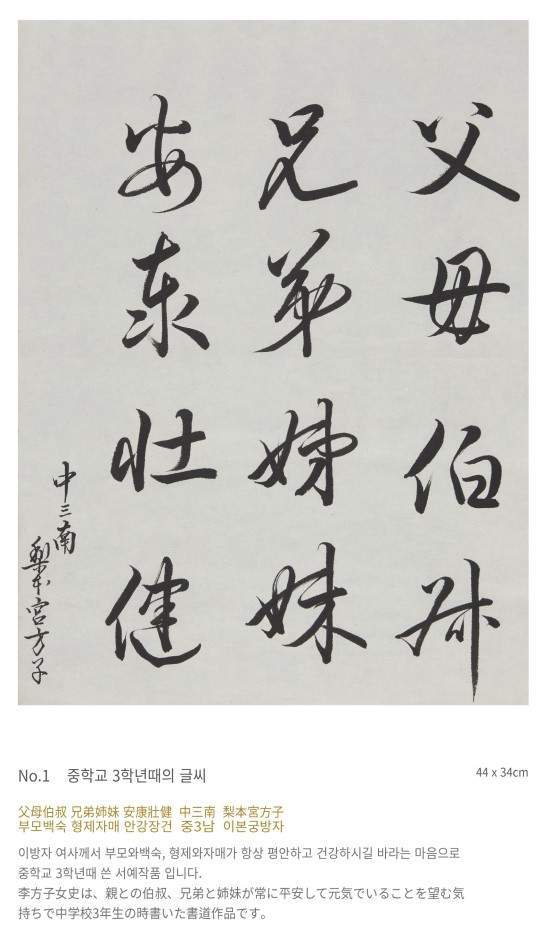 父母伯叔
兄弟姉妹
安康壮健
中三南
梨本宮方子
No.1 중학교 3학년때의 글씨
44 x 34cm
父母伯叔 兄弟姉妹 安康壯健 中三南 梨本宮方子
부모백숙 형제자매 안강장건 중3남 이본궁방자
이방자 여사께서 부모와백숙, 형제와자매가 항상 평안하고 건강하시길 바라는 마음으로
중학교 3학년때 쓴 서예작품 입니다.
李方子女史は、親との伯叔、兄弟と姉妹が常に平安して元気でいることを望む気
持ちで中学校3年生の時書いた書道作品です。